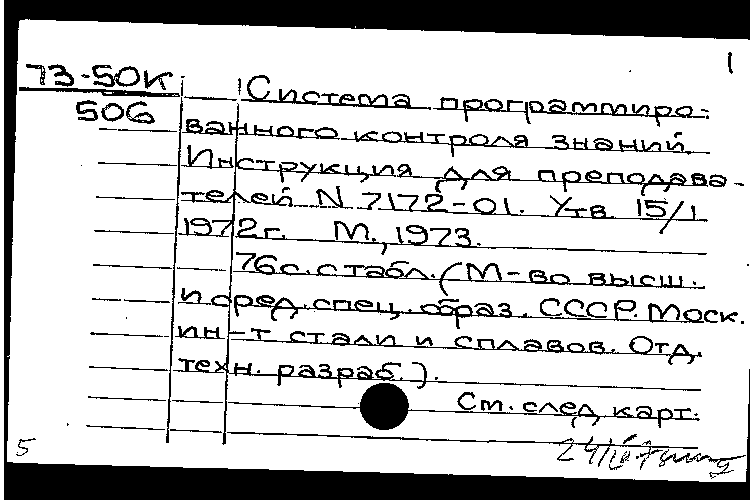 1
73-50К
506
Система программиро-
ванного контроля знаний.
Инструкция для преподава-
телей N 7172-01. Утв. 15/I
1972г. М., 1973.
76с. с табл. (М-во высш.
и сред. спец. образ. СССР. Моск.
ин-т стали и сплавов. Отд.
техн. разраб.).
См. след. карт.
5